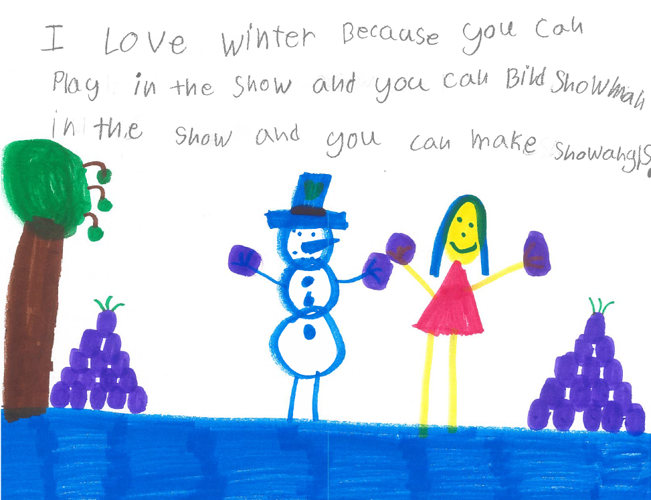 I Love winter Because you can
Play in the snow and you can Bild snowman
in the snow and you can make snowangls.